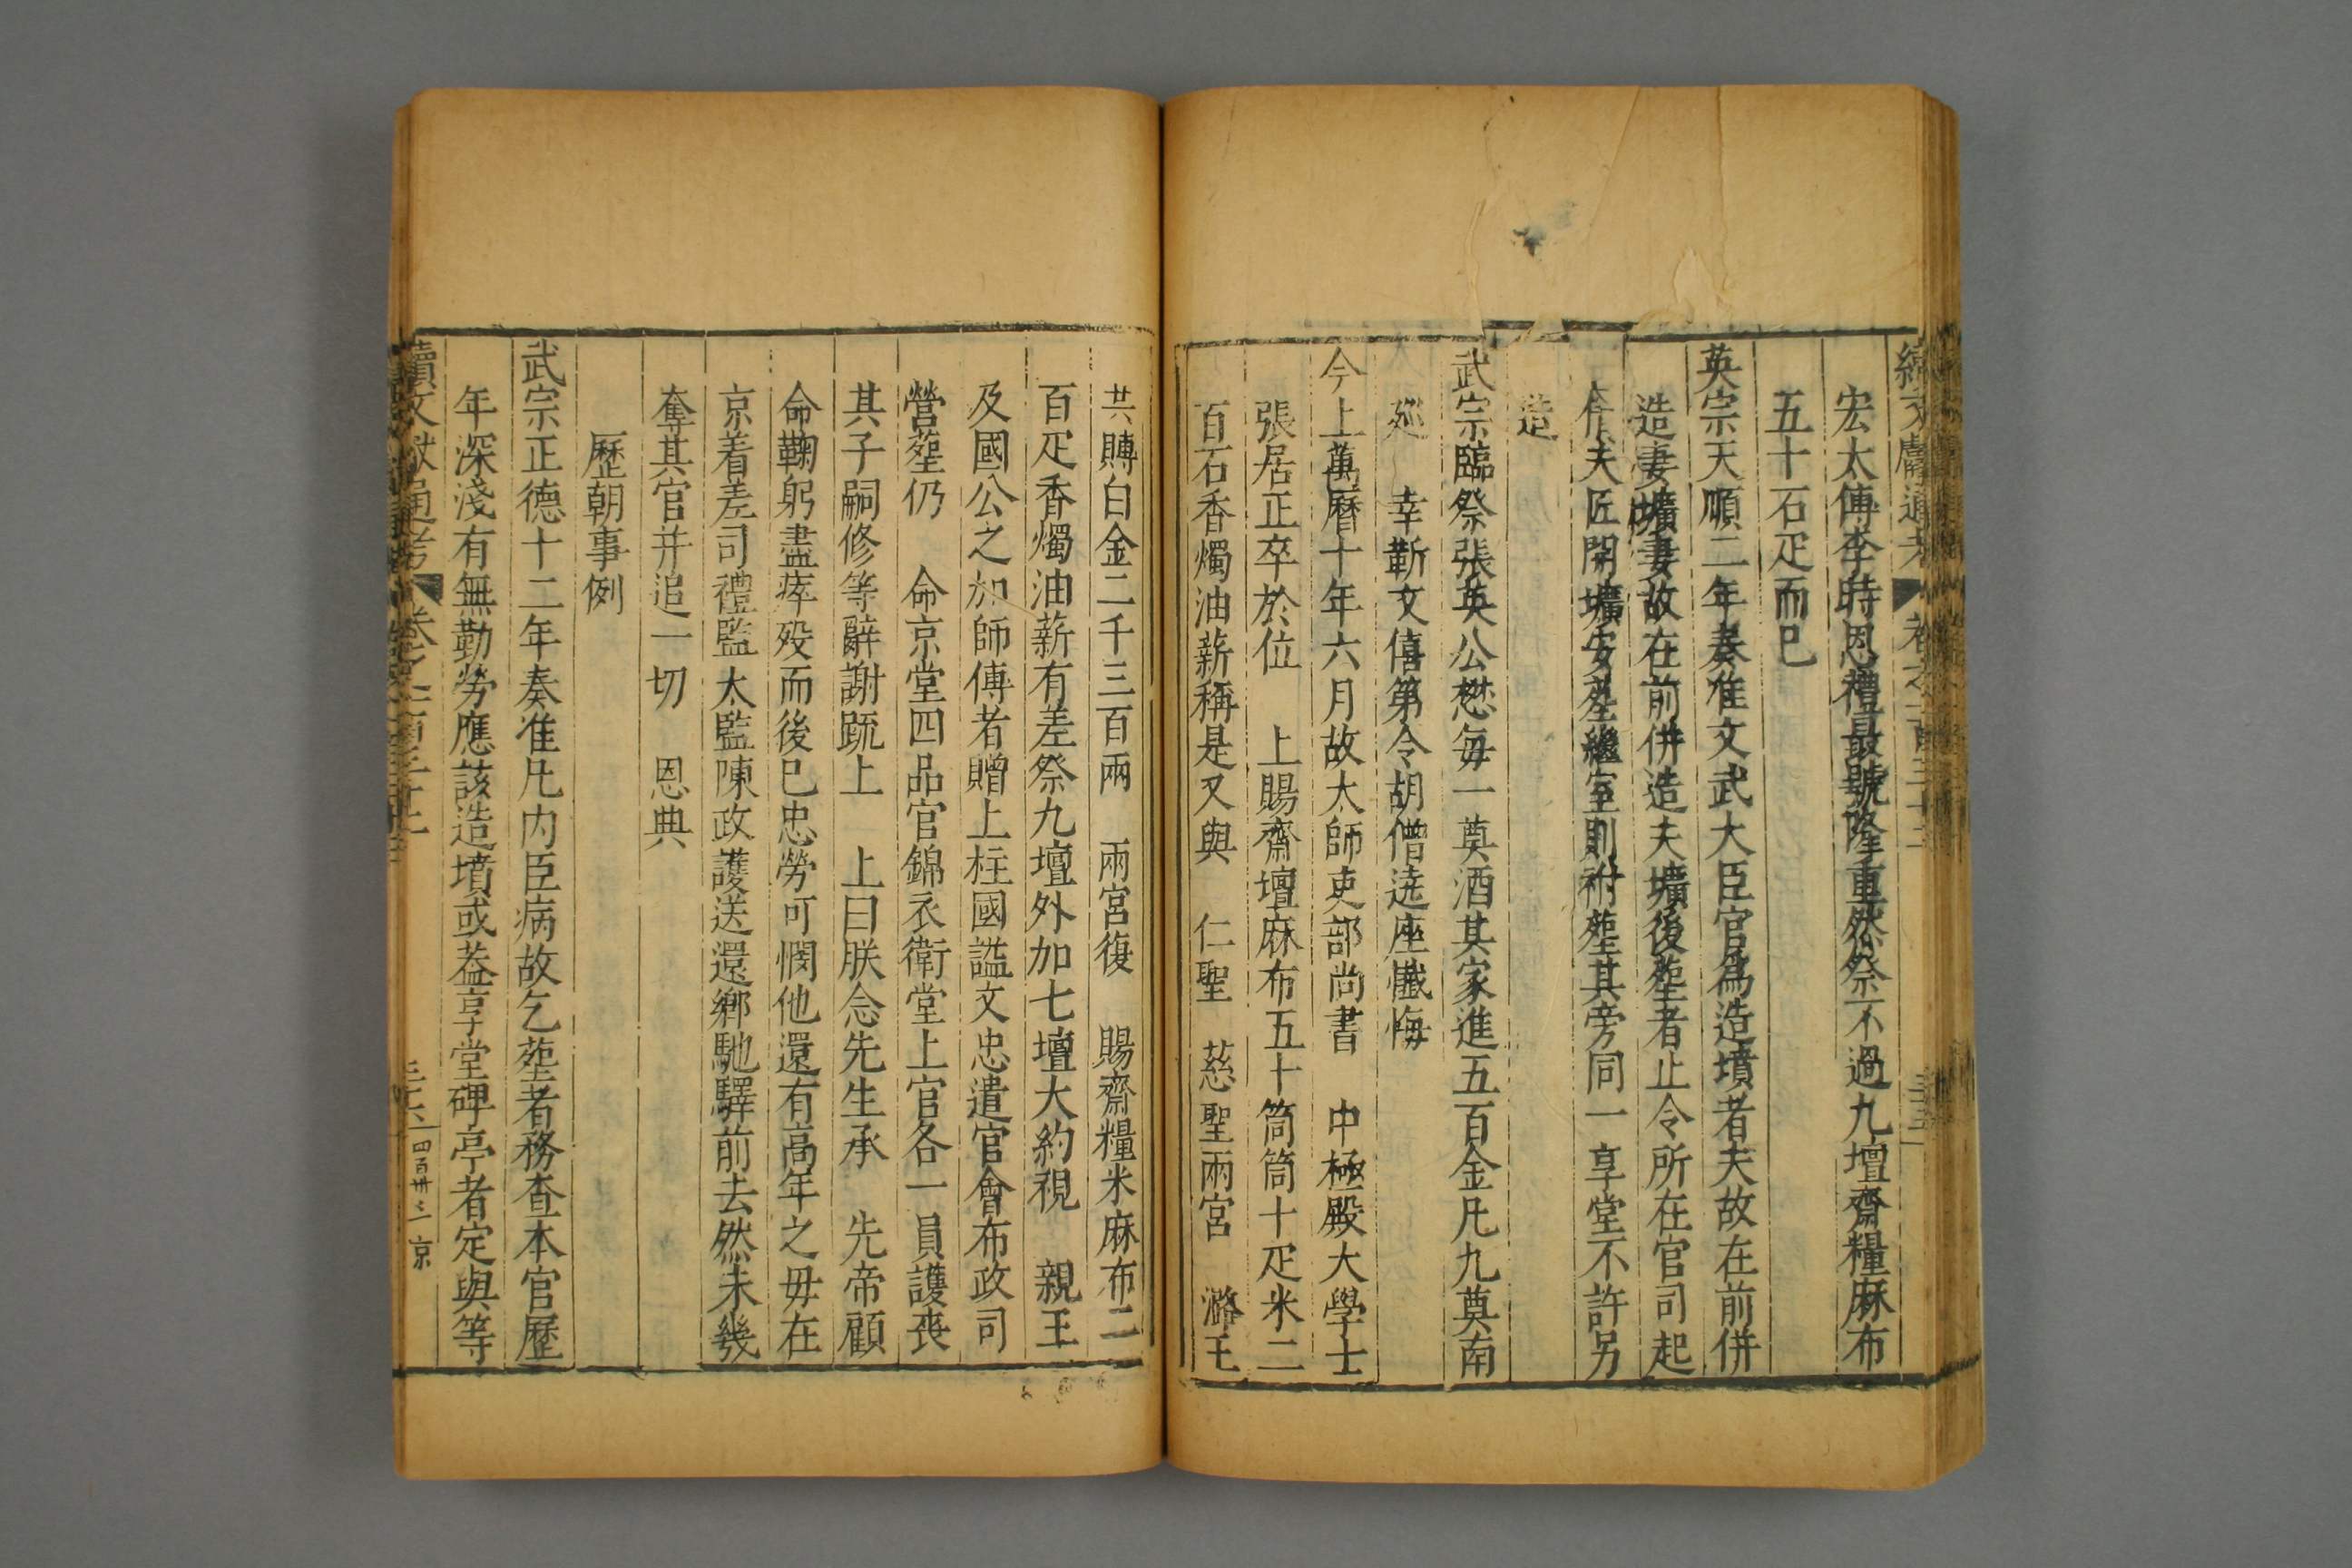 續文獻通考 卷之一百三十三
宏太傅李時恩禮最號隆重然祭不過九壇齋糧麻布
五十石疋而已
英宗天順二年奏准文武大臣官爲造墳者夫故在前併
造妻壙妻故在前併造夫壙後塟者止令所在官司起
倩夫匠開壙安塟繼室則祔塟其旁同一享堂不許另
造
武宗臨祭張英公懋每一奠酒其家進五百金凡九奠南
廵 幸靳文僖第令胡僧遶座懺悔
今上萬曆十年六月故太師吏部尚書 中極殿大學士
張居正卒於位 上賜齋壇麻布五十筒筒十疋米二
百石香燭油薪稱是又與 仁聖 慈聖兩宮 潞王
共賻白金二千三百兩 兩宮復 賜齋糧米麻布二
百疋香燭油薪有差祭九壇外加七壇大約視 親王
及國公之加師傅者贈上柱國謚文忠遣官會布政司
營塟仍 命京堂四品官錦衣衛堂上官各一員護喪
其子嗣修等辭謝䟽上 上曰朕念先生承 先帝顧
命鞠躬盡瘁殁而後已忠勞可憫他還有高年之毋在
京着差司禮監太監陳政護送還鄉馳驛前去然未幾
奪其官并追一切 恩典
歷朝事例
武宗正德十二年奏准凡内臣病故乞塟者務查本官歷
年深淺有無勤勞應該造墳或葢享堂碑亭者定與等
續文獻通考 卷之一百三十三 三十六 四百卅三 京